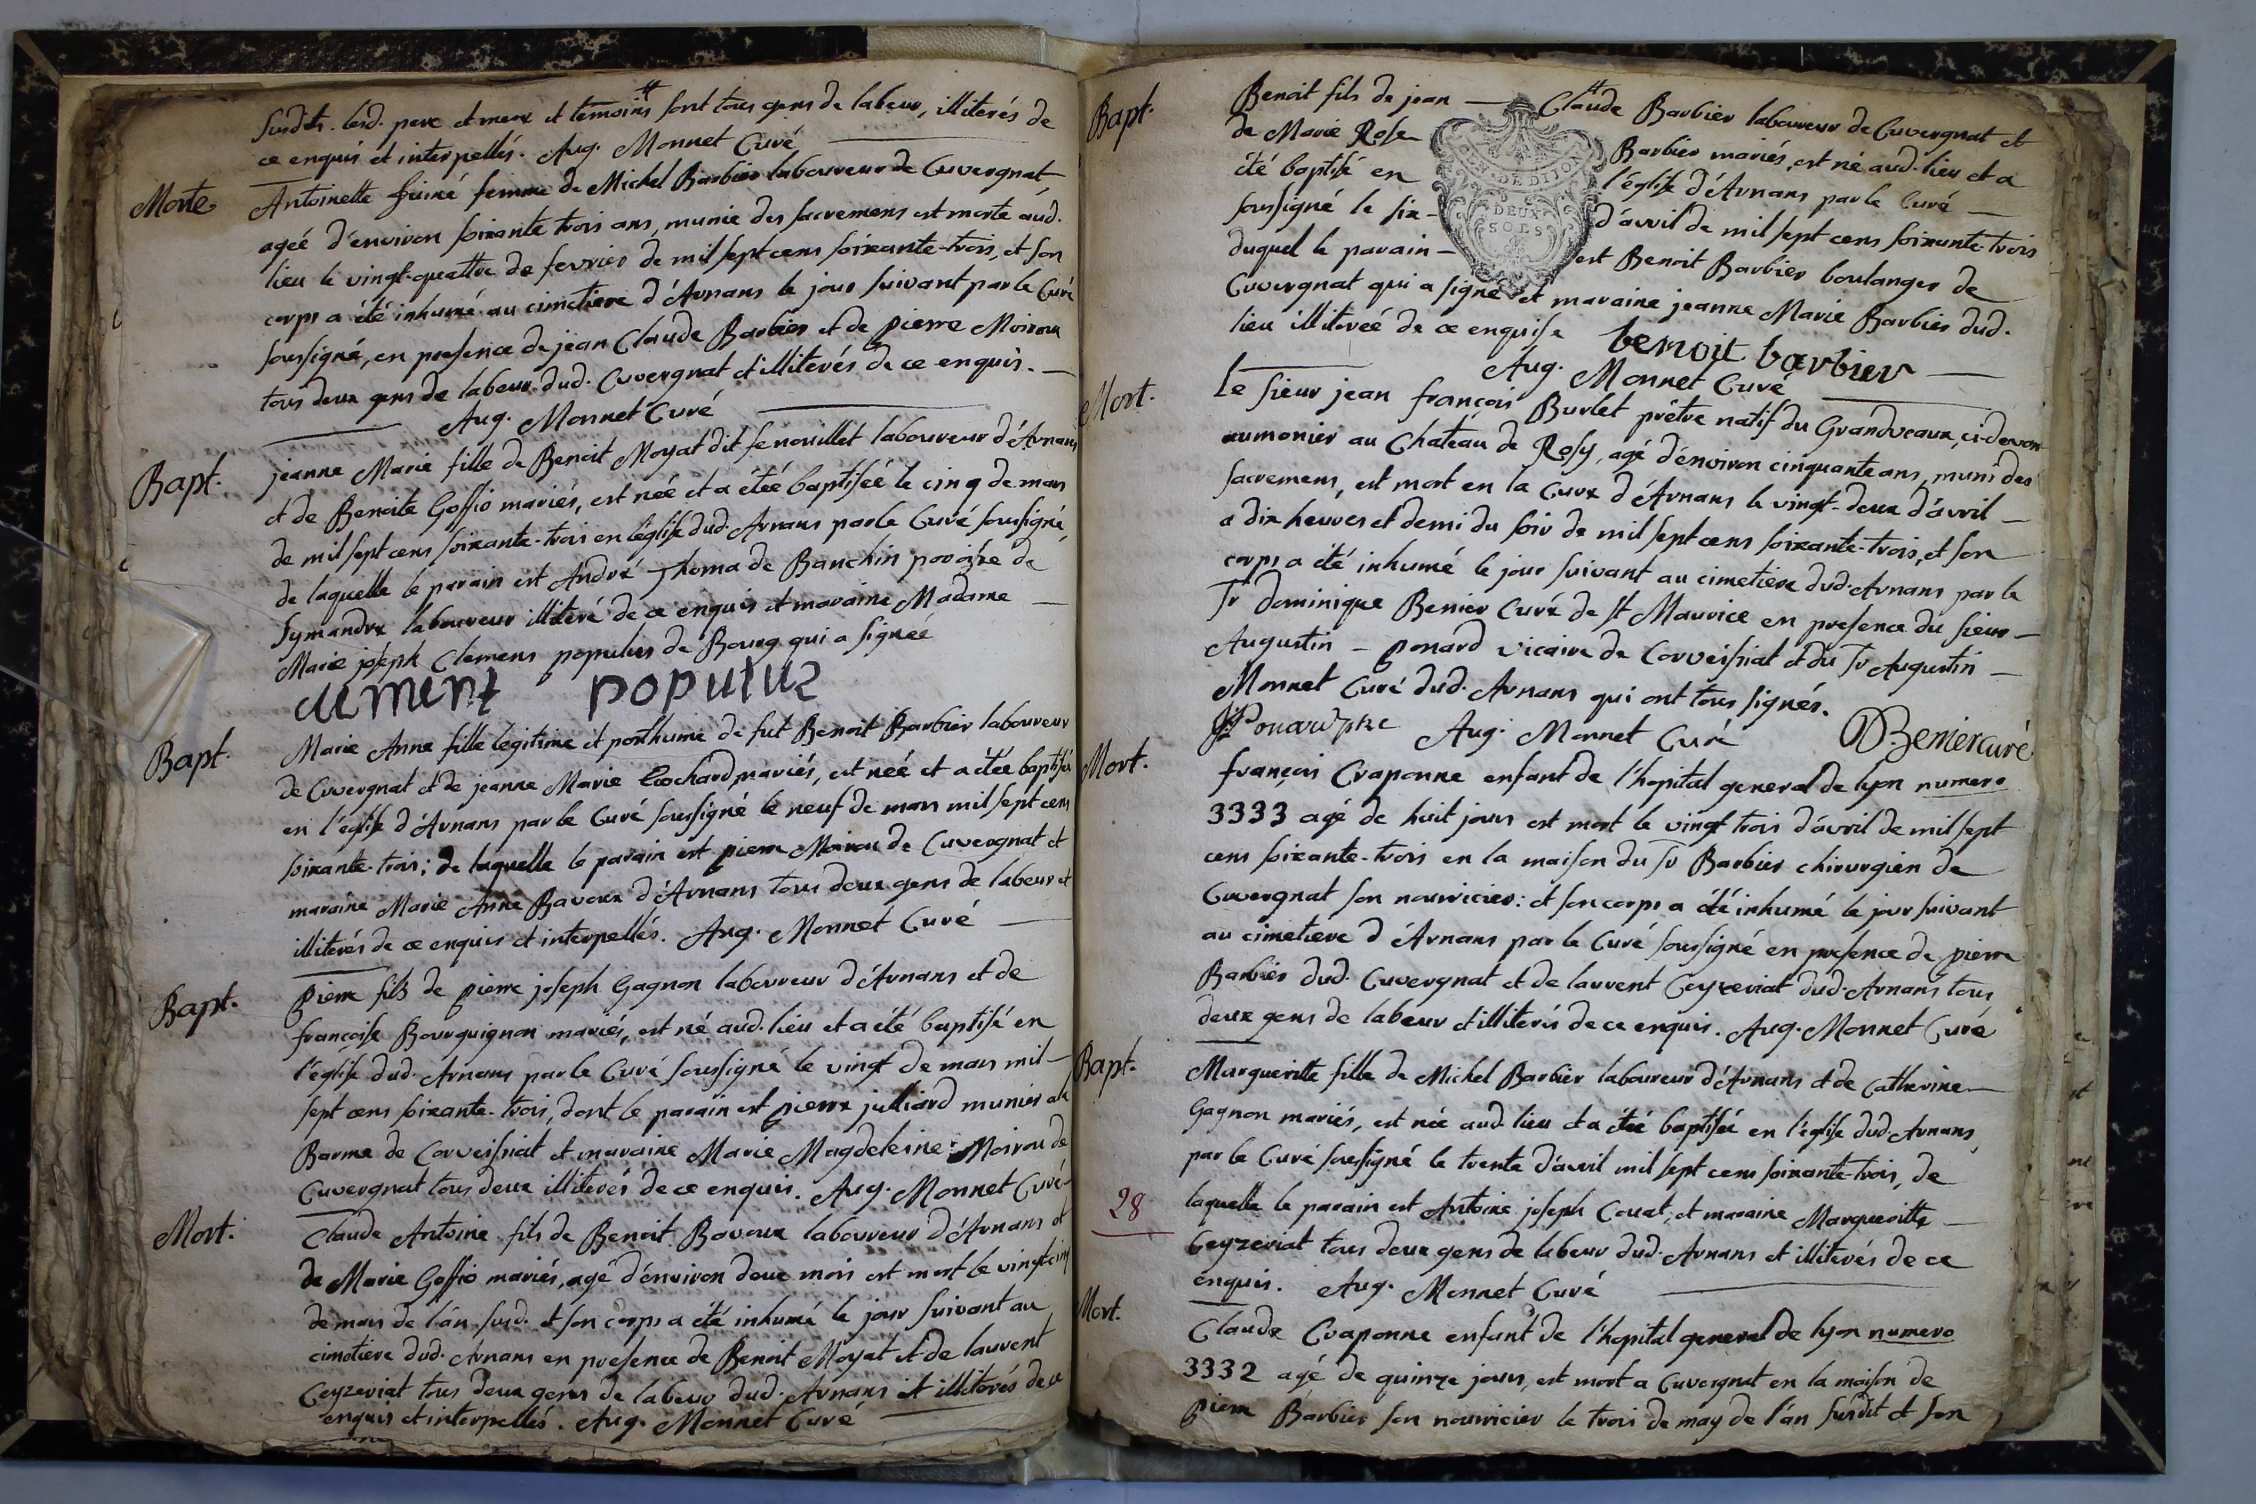 susdits. lesd. pere et mere et temoins sont tous gens de labeur, illiterés de
ce enquis et interpellés. Aug. Monnet Curé
Morte
Antoinette femme de Michel Barbier laboureur de Cuvergnat,
ageé d'environ soixante trois ans, munie des sacremens est morte aud.
lieu le vingt-quattre de fevrier de mil sept cens soixante-trois, et son
corps a été inhumé au cimetiere d'Arnans le jour suivant par le Curé
soussigné, en presence de jean Claude Barbier et de pierre Moiroux
tous deux gens de labeur dud. Cuvergnat et illiterés de ce enquis.
Aug. Monnet Curé
Bapt.
jeanne Marie fille de Benoit Moyat dit fenouillet laboureur d'Arnans
et de Benoite Goffio mariés, est née et a étée baptisée le cinq de mars
de mil sept cens soixante-trois en l'église dud. Arnans par le Curé soussigné,
de laquelle le parain est André Thoma de Banchin paroisse de
Symandre laboureur illiteré de ce enquis et maraine Madame
Marie joseph Clemens populus de Bourg qui a signée
clement populus
Bapt.
Marie Anne fille legitime et posthume de fut Benoit Barbier laboureur
de Cuvergnat et de jeanne Marie Cochard mariés, est neé et a étée baptisée
en l'église d'Arnans par le Curé soussigné le neuf de mars mil sept cens
soixante-trois; de laquelle le parain est pierre Moirou de Cuvergnat et
maraine Marie Anne Bavoux d'Arnans tous deux gens de labeur et
illiterés de ce enquis et interpellés. Aug. Monnet Curé
Bapt.
pierre fils de pierre joseph Gagnon laboureur d'Arnans et de
françoise Bourguignon mariés, est né aud. lieu et a été baptisé en
l'église dud. Arnans par le Curé soussigné le vingt de mars mil-
sept cens soixante-trois, dont le parain est pierre julliard munier a la
Barme de Corveissiat et maraine Marie Magdeleine Moirou de
Cuvergnat tous deux illiterés de ce enquis. Aug. Monnet Curé
Mort.
Claude Antoine fils de Benoit Bavoux laboureur d'Arnans et
de Marie Goffio mariés, agé d'environ deux mois est mort le vingt cinq
de mars de l'an susd. et son corps a été inhumé le jour suivant au
cimetiere dud. Arnans en presence de Benoit Moyat et de laurent
Ceyzeriat tous deux gens de labeur dud. Arnans et illiterés de ce
enquis et interpellés. Aug. Monnet Curé
Bapt.
Benoit fils de jean Claude Barbier laboureur de Cuvergnat et
de Marie Rose Barbier mariés, est né aud. lieu et a
été baptisé en l'église d'Arnans par le Curé
soussigné le six d'avril de mil sept cens soixante-trois
duquel le parain est Benoit Barbier boulanger de
Cuvergnat qui a signé et maraine jeanne Marie Barbier dud.
lieu illitereé de ce enquise benoit barbier
Aug. Monnet Curé
GEN. DE DIJON
DEUX
SOLS
Mort.
Le sieur jean françois Burlet prêtre natif du Grandvaux, ci-devant
aumonier au Chateau de Rosy, agé d'environ cinquante ans, muni des
sacremens, est mort en la Cure d'Arnans le vingt-deux d'avril
a dix heures et demi du soir de mil sept cens soixante-trois, et son
corps a été inhumé le jour suivant au cimetiere dud. Arnans par le
Sr dominique Benier Curé de St Maurice en presence du sieur
Augustin ponard vicaire de Corveissiat et du Sr Augustin
Monnet Curé dud. Arnans qui ont tous signés.
Ponard ptre Aug. Monnet Curé D Benier curé
Mort.
françois Craponne enfant de l'hopital general de lyon numero
3333 agé de huit jours est mort le vingt trois d'avril de mil sept
cens soixante-trois en la maison du Sr Barbier chirurgien de
Cuvergnat son nourricier: et son corps a été inhumé le jour suivant
au cimetiere d'Arnans par le Curé soussigné en presence de pierre
Barbier dud. Cuvergnat et de laurent Ceyzeriat dud. Arnans tous
deux gens de labeur et illiterés de ce enquis. Aug. Monnet Curé
Bapt.
Marguerite fille de Michel Barbier laboureur d'Arnans et de Catherine
Gagnon mariés, est née aud. lieu et a étée baptisée en l'église dud. Arnans,
par le Curé soussigné le trente d'avril mil sept cens soixante-trois, de
28
laquelle le parain est Antoine joseph Couat, et maraine Marguerite
Ceyzeriat tous deux gens de labeur dud. Arnans et illiterés de ce
enquis. Aug. Monnet Curé
Mort.
Claude Craponne enfant de l'hopital general de lyon numero
3332 agé de quinze jours, est mort a Cuvergnat en la maison de
pierre Barbier son nourricier le trois de may de l'an susdit et son